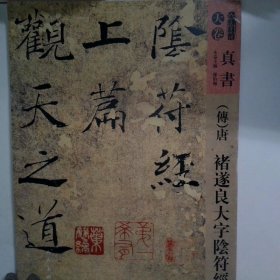 陰符經
上篇
觀天之道
大卷
真書
(傳)唐 褚遂良大字陰符經